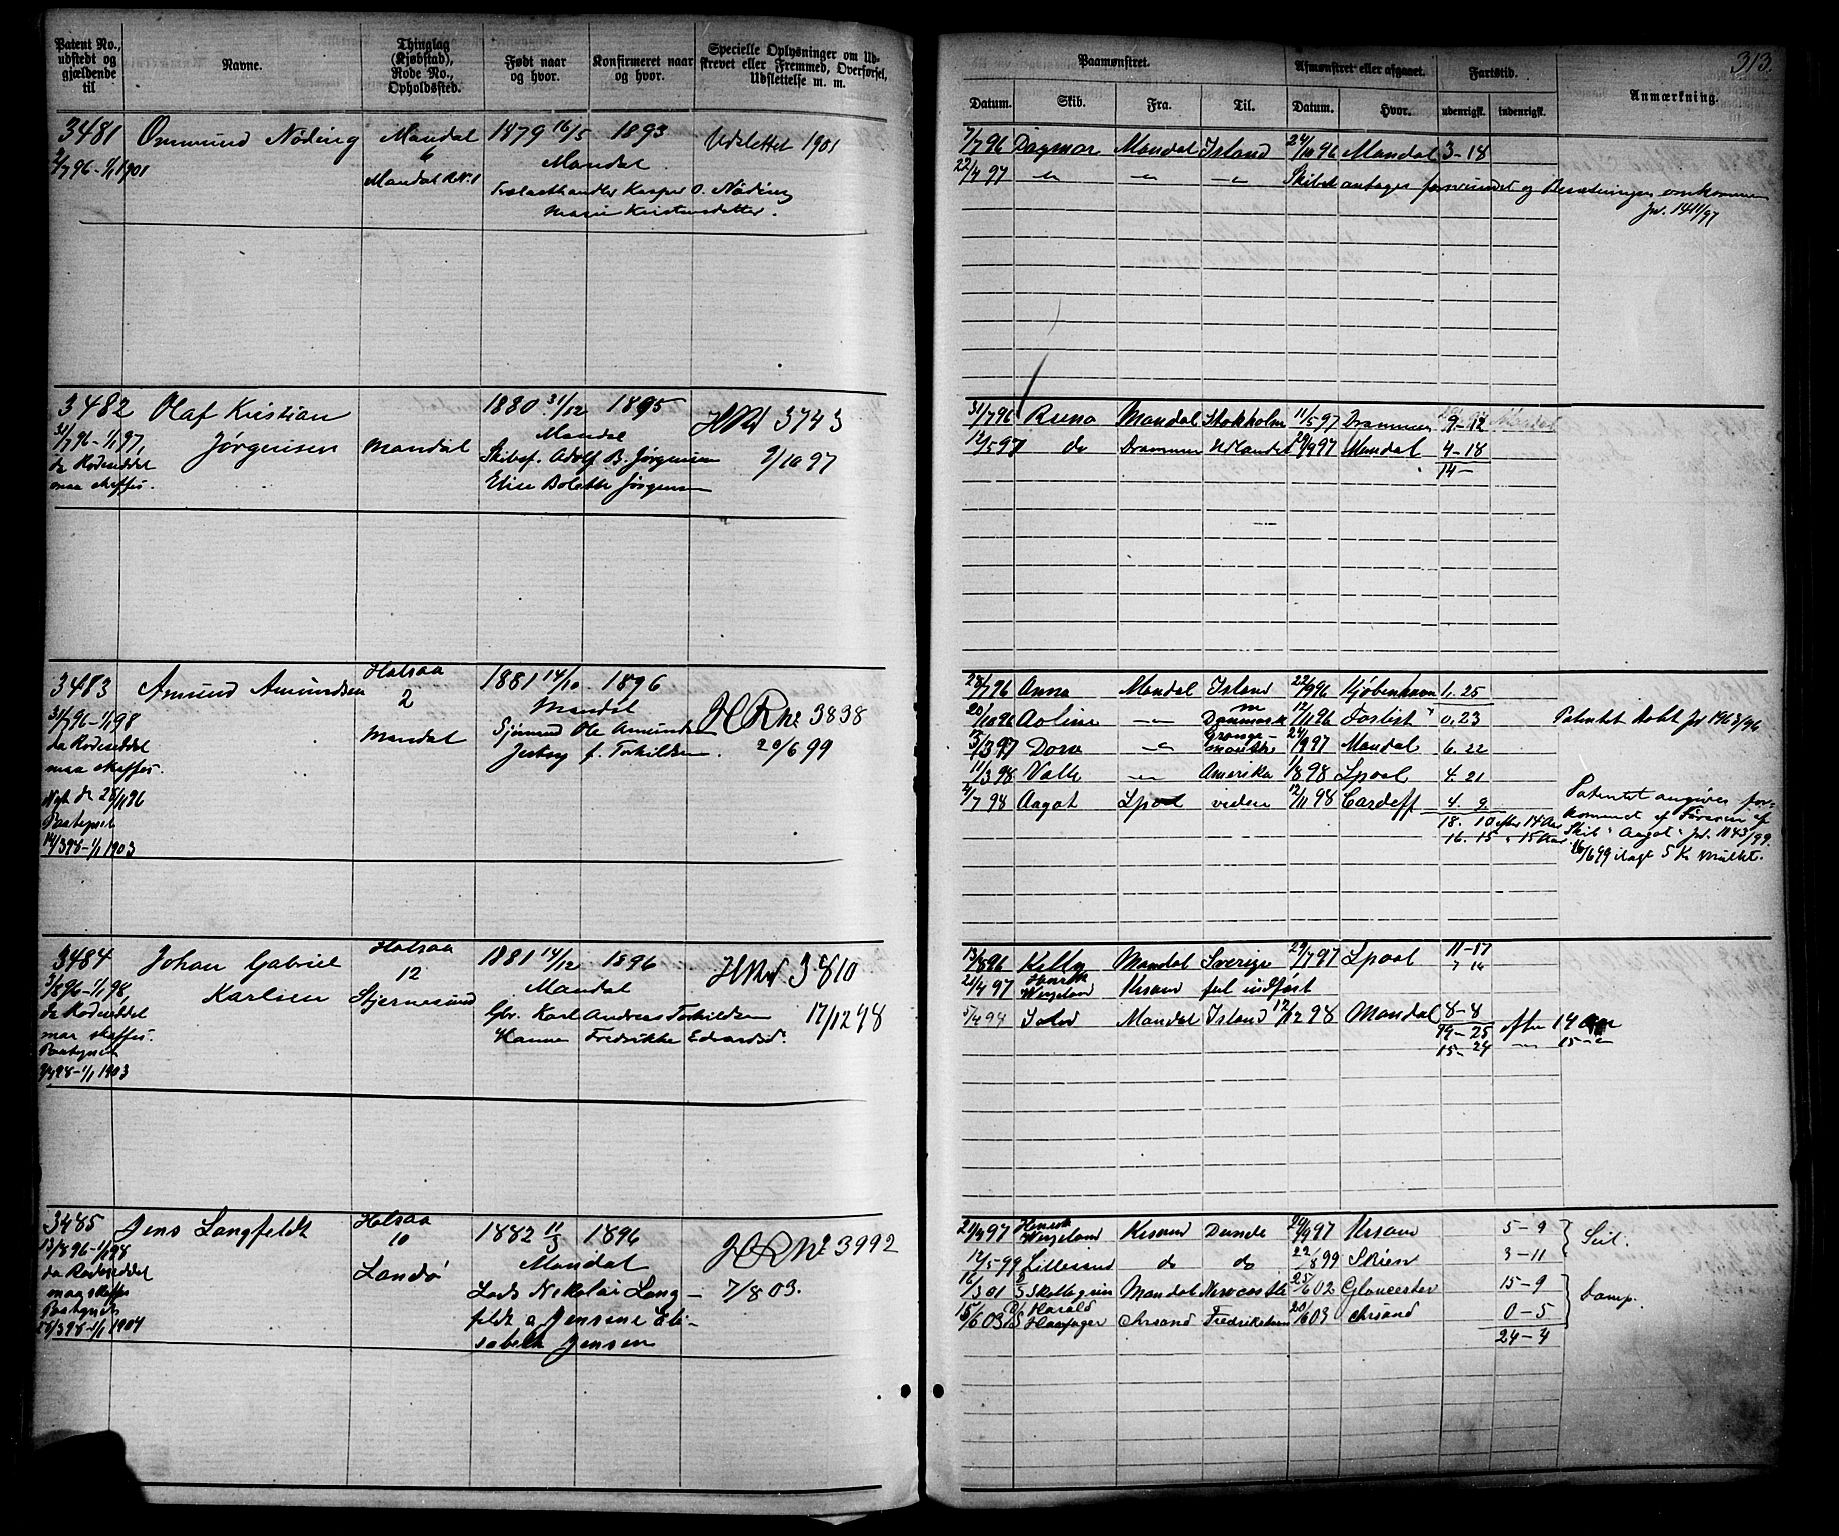 313.
Patent No., udstedt og gjældende til
Navne.
Thinglag (Kjøbstad), Rode No., Opholdssted.
Født naar og hvor.
Konfirmeret naar og hvor.
Specielle Oplysninger om Udskrevet eller Fremmed, Overførsel, Udslettelse m. m.
Paamønstret.
Afmønstret eller afgaaet.
Fartstid.
Anmærkning.
Datum. Skib. Fra. Til. Datum. Hvor. udenrigsk. indenrigsk.
3481 Ommund Nöding Mandal 1879 16/5 1893 Udslettet 1901
2/7 96-1/1 1901 6 Mandal
Mandal R.N.1 Trælasthandler Kasper O. Nöding
Marie Kristensdatter.
7/7 96 Dagmar Mandal Island 24/10 96 Mandal 3-18
22/4 97 " " " Skibet antages forsvundet og Besætningen omkommen
Jnr. 1411/97
3482 Olaf Kristian 1880 31/12 1895 HRN 3743
31/7 96-1/1 97, Jørgensen Mandal Mandal 9/10 97
da Rodeseddel Skibsf. Adolf B. Jørgensen
maa skaffes. Elise Bolette Jørgensen
31/7 96 Runa Mandal Stokholm 11/5 97 Drammen 9-12 Mandal
12/5 97 do Drammen Udlandet 29/9 97 Mandal 4-18
14-
3483 Amund Amundsen Halsaa 1881 14/10 1896
2 Mandal HRNo 3838
31/7 96-1/1 98 Mandal Sjömand Ole Amundsen 20/6 99
da Rodeseddel Jensy f. Torkildsen.
maa skaffes.
Nyt dr 25/11 96
Paategnet
14/3 98-1/1 1903
28/7 96 Anna Mandal Island 22/9 96 Kjöbenhavn 1. 25
20/10 96 Aoline " Danmark 12/11 96 Forlist 0. 23 Patentet Robt Jr 1963/96
5/3 97 Dora " 24/9 97 Mandal 6. 22
11/3 98 Valk " Amerika 1/8 98 Lpool 4. 21
2/7 98 Aagot Lpool viden 12/11 98 Cardiff 4. 9
18. 10 efter 14 Aar
16. 15 " 15 Aar.
Patentet angives forkommet af Føreren af
Skib "Aagot" Jr. 1143/99.
16/6 99 ilagt 5 Kr Mulkt.
3484 Johan Gabriel Halsaa 1881 14/12 1896 HRN 3810
3/8 96-1/1 98, Karlsen 12 Mandal
da Rodeseddel Stjernesund Gbr. Karl Andreas Torkildsen 17/12 98
maa skaffes. Hanne Fredrikke Edvardsd.
Paategnet
98-1/1 1903
13/8 96 Kitty Mandal Sverige 29/7 97 Lpool 11-17
21/4 97 Henrik Wergeland Krsand feil indført
Mandal Island 12/12 98 Mandal 8-8
19-25 efter 14 Aar
15-24 " 15 "
3485 Jens Langfeldt Halsaa 1882 11/3 1896 HRNo 3992
13/8 96-1/1 98 10 Mandal
da Rodeseddel Landö Lods Nikolai Lang- 7/8 03.
maa skaffes feldt a Jensine Eli-
Paategnet sabeth Jensen
98-1/1 1904
21/4 97 Henrik Wergeland Krsand Dunde 97 Krsand 5-9
12/5 99 Lillesand do do 22/8 99 Skien 3-11 Seil.
16/3 01 Skottegrim Mandal Newcastle 25/6 02 Gloucester 15-9
15/6 03 D/S Harald Haarfager Chrsand Fredrikshavn 20/6 03 Chrsand 0-5 Damp.
24-4